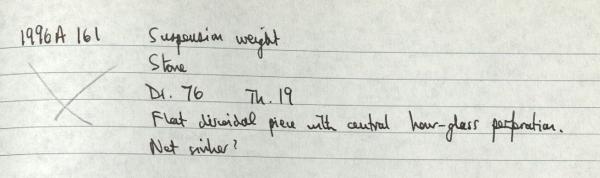 1996A 161 Suspension weight
Stone
Di. 76 Th. 19
Flat discoidal piece with central hour-glass perforation.
Net sinker?